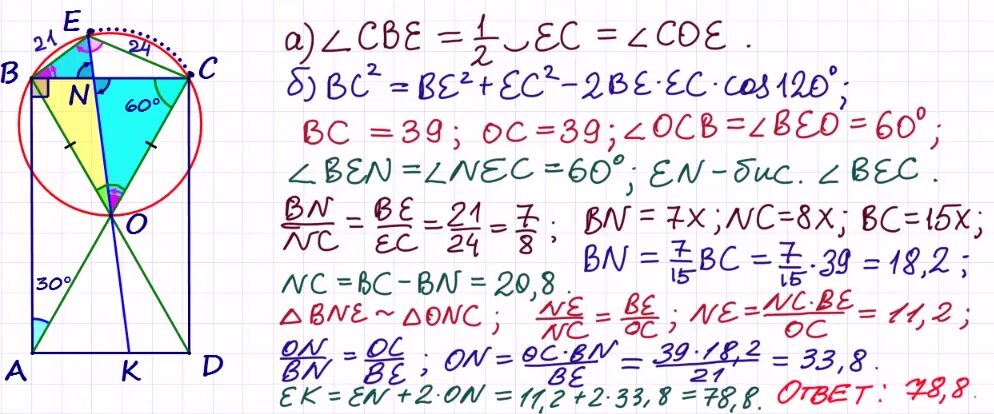 E
21
24
B
C
N
60°
O
30°
A
K
D
а) ∠CBE = 1/2 ◡EC = ∠COE .
б) BC² = BE² + EC² − 2BE · EC · cos120° ;
BC = 39 ; OC = 39 ; ∠OCB = ∠BEO = 60° ;
∠BEN = ∠NEC = 60° ; EN – бис. ∠BEC .
BN/NC = BE/EC = 21/24 = 7/8 ; BN = 7x ; NC = 8x ; BC = 15x ;
BN = 7/15 BC = 7/15 · 39 = 18,2 ;
NC = BC − BN = 20,8 .
△BNE ~ △ONC ; NE/NC = BE/OC ; NE = NC·BE/OC = 11,2 ;
ON/BN = OC/BE ; ON = OC·BN/BE = 39·18,2/21 = 33,8 .
EK = EN + 2·ON = 11,2 + 2·33,8 = 78,8 . Ответ : 78,8 .